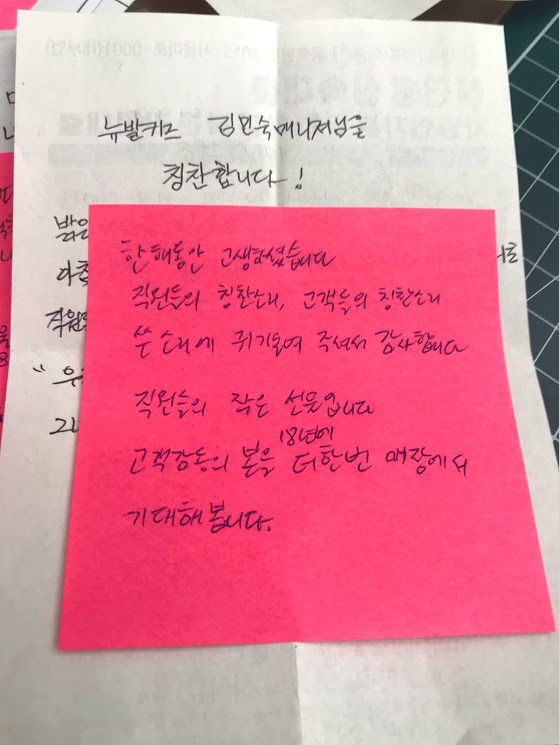 뉴발키즈 김민숙매니저님을
칭찬합니다!
밝은
아침
직원
한해동안 고생하셨습니다
직원들의 칭찬소리, 고객들의 칭찬소리
쓴소리에 귀기울여 주셔서 감사합니다
직원들의 작은 선물입니다
18년에
고객감동의 붐을 더한번 매장에서
기대해봅니다.